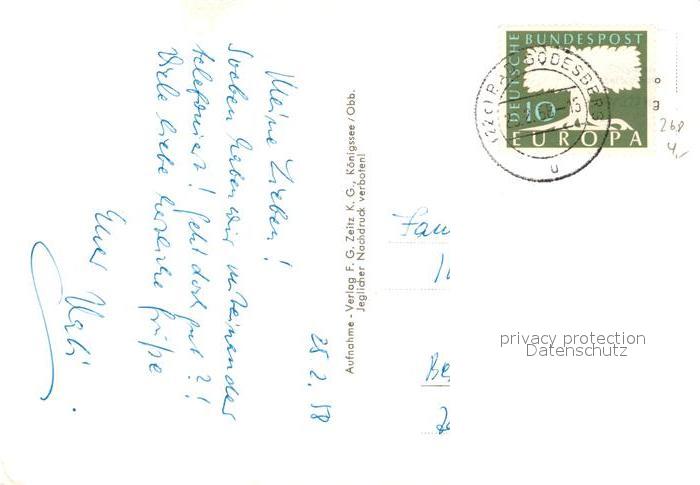 25.2.58
Meine Lieben!
Soeben haben wir miteinander
telefoniert! Geht doch gut?!
Viele liebe herzliche Grüße
Euer
Aufnahme - Verlag F. G. Zeitz K. G., Königssee/Obb.
Jeglicher Nachdruck verboten!
DEUTSCHE BUNDESPOST
10
EUROPA
(22c) BAD GODESBERG
u
Fam
Be
268
4,-
privacy protection
Datenschutz